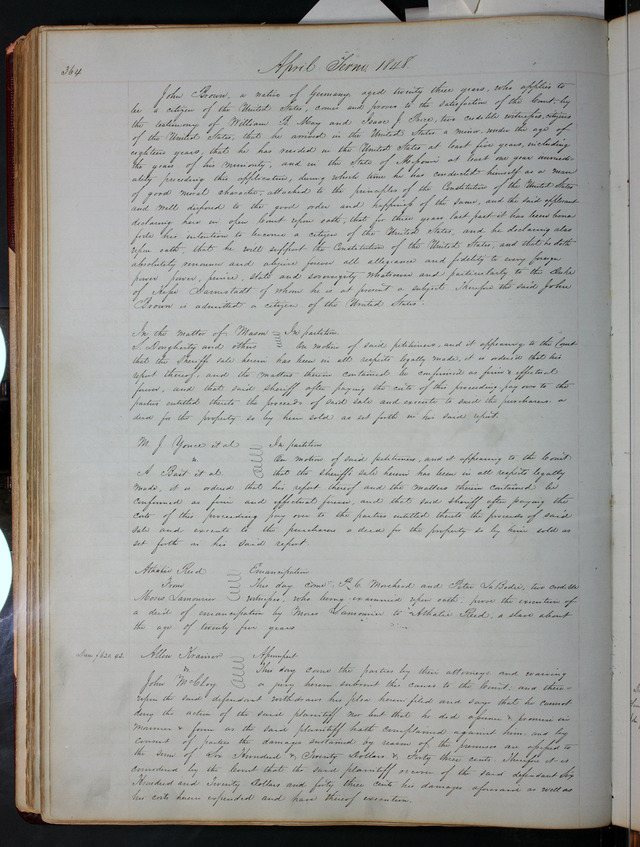 364
April Term 1848
John Brown, a native of Germany, aged twenty three years, who applies to
be a citizen of the United States, comes and proves to the satisfaction of the Court, by
the testimony of William S. May and Isaac J. two credible witnesses, citizens
of the United States, that he arrived in the United States a minor, under the age of
eighteen years, that he has resided in the United States at least five years, including
the years of his minority, and in the State of Missouri at least one year immedi-
ately preceding this application, during which time he has conducted himself as a man
of good moral character, attached to the principles of the Constitution of the United States
and well disposed to the good order and happiness of the same, and the said applicant
declaring here in open Court upon oath, that for three years last past it has been bona
fide his intention to become a citizen of the United States, and he declaring also
upon oath, that he will support the Constitution of the United States, and that he doth
absolutely renounce and abjure forever all allegiance and fidelity to every foreign
power, prince, state and sovereignty whatsoever and particularly to the Duke
of Hesse Darmstadt of whom he is at present a subject. Therefore the said John
Brown is admitted a citizen of the United States.
In the matter of Mason In partition
I. Dougherty and others On motion of said petitioners, and it appearing to the Court
that the Sheriff sale herein has been in all respects legally made, it is ordered that his
report thereof, and the matters therein contained be confirmed as firm & effectual
forever, and that said sheriff after paying the costs of this proceeding, pay over to the
parties entitled thereto the proceeds of said sale and execute to said the purchasers a
deed for the property so by him sold as set forth in his said report.
M. J. Yonce et al In partition
vs. On motion of said petitioners, and it appearing to the Court
A. et al that the sheriffs sale herein has been in all respects legally
made, it is ordered that his report thereof and the matters therein contained be
confirmed as firm and effectual forever, and that said sheriff after paying the
costs of this proceeding pay over to the parties entitled thereto the proceeds of said
sale and execute to the purchasers a deed for the property so by him sold as
set forth in his said report.
Athalie Reed Emancipation
From This day come P. C. Morehead and Peter LaBodie, two credible
Moses Lamourier witnesses, who being examined upon oath prove the execution of
a deed of emancipation by Moses Lamourier to Athalie Reed, a slave about
the age of twenty five years
Allen Assumpsit
vs This day come the parties by their attorneys and waiving
John McCloy a jury herein submit this cause to the Court, and there-
upon the said defendant withdraws his plea herein filed and says that he cannot
deny the action of the said plaintiff nor but that he did assume & promise in
manner & form as the said plaintiff hath complained against him and by
consent of parties the damages sustained by reason of the premises are assessed to
the sum of Six Hundred & Twenty Dollars & Forty three cents. Therefore it is
considered by the Court that the said plaintiff recover of the said defendant Six
Hundred and Twenty Dollars and forty three cents his damages aforesaid as well as
his costs herein expended and have thereof execution.